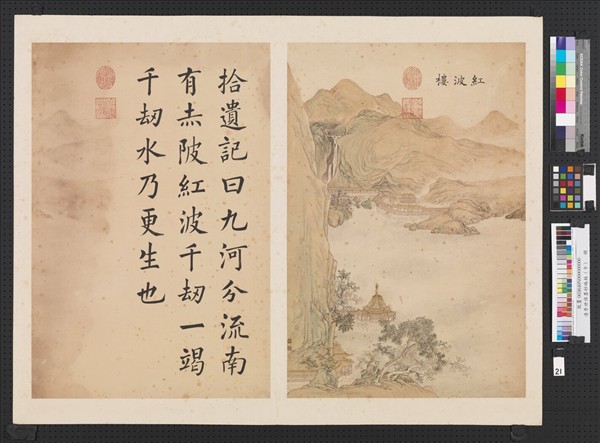 紅波樓
拾遺記曰九河分流南
有赤陂紅波千刼一竭
千刼水乃更生也
21